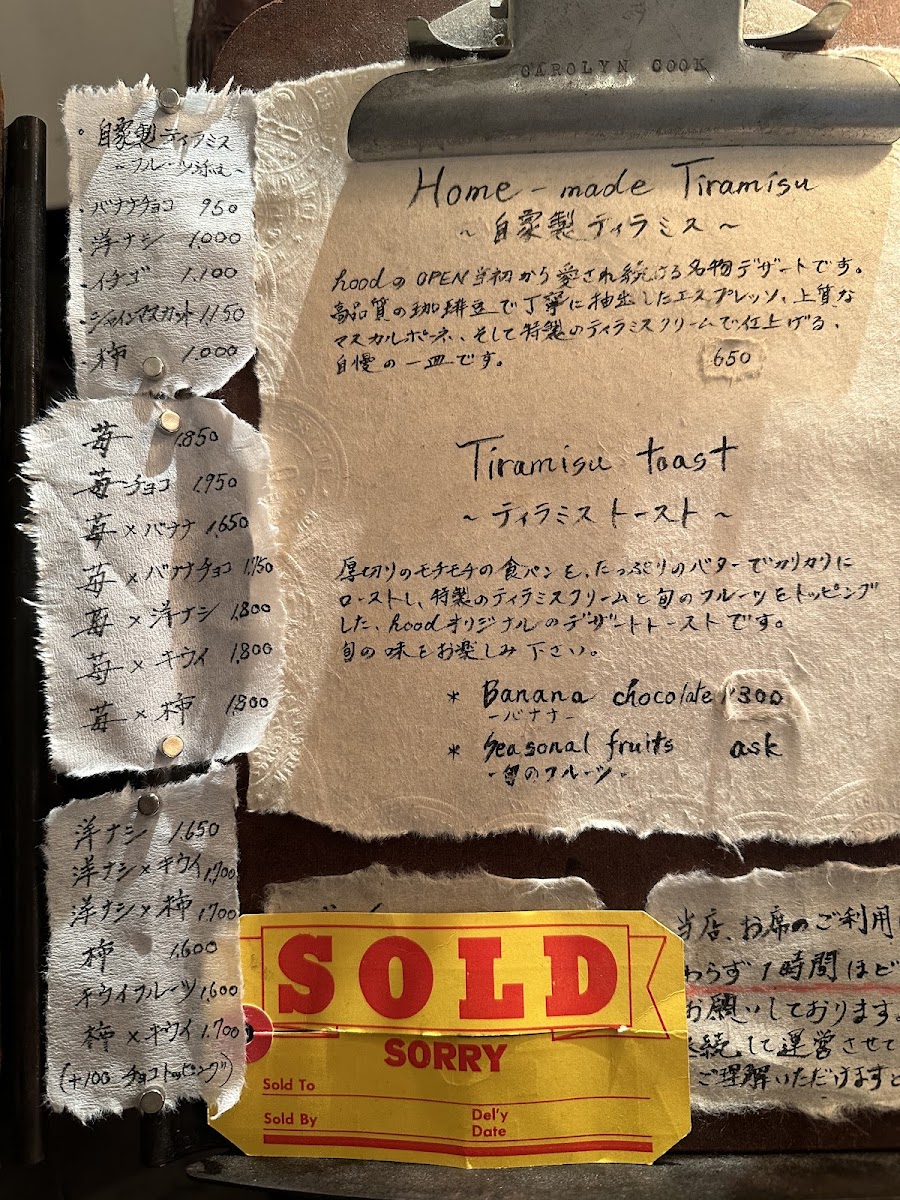 CAROLYN COOK
・自家製ティラミス
~フルーツ添え~
・バナナチョコ 950
・洋ナシ 1,000
・イチゴ 1,100
・シャインマスカット 1,150
柿 1,000
苺 1,850
苺チョコ 1,950
苺×バナナ 1,650
苺×バナナチョコ 1,750
苺×洋ナシ 1,800
苺×キウイ 1,800
苺×柿 1,800
洋ナシ 1,650
洋ナシ×キウイ 1,700
洋ナシ×柿 1,700
柿 1,600
キウイフルーツ 1,600
柿×キウイ 1,700
(+100 チョコトッピング)
Home-made Tiramisu
~自家製ティラミス~
hoodのOPEN当初から愛され続ける名物デザートです。
高品質の珈琲豆で丁寧に抽出したエスプレッソ、上質な
マスカルポーネ、そして特製のティラミスクリームで仕上げる、
自慢の一皿です。 650
Tiramisu toast
~ティラミストースト~
厚切りのモチモチの食パンを、たっぷりのバターでカリカリに
ローストし、特製のティラミスクリームと旬のフルーツをトッピング
した、hoodオリジナルのデザートトーストです。
旬の味をお楽しみ下さい。
* Banana chocolate 1300
-バナナ-
* Seasonal fruits ask
-旬のフルーツ-
SOLD
SORRY
Sold To
Sold By
Del'y
Date
当店、お席のご利用
わらず1時間ほど
お願いしております。
継続して運営させて
ご理解いただけますと